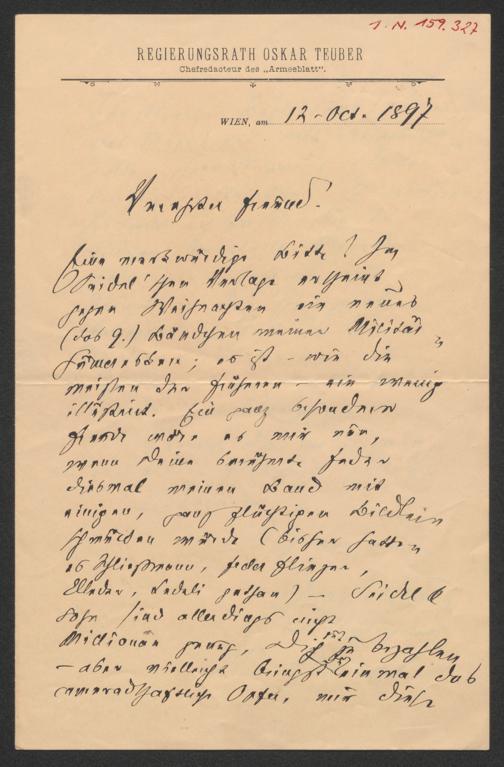 I. N. 159.327
REGIERUNGSRATH OSKAR TEUBER
Chefredacteur des „Armeeblatt“.
WIEN, am 12. Oct. 1897
Verehrter Freund!
Eine merkwürdige Bitte! Im
Seidel'schen Verlage erscheint
gegen Weihnachten ein neues
(das 9.) Bändchen meiner Militär-
humoresken; es ist – wie die
meisten der früheren – ein wenig
illustrirt. Ein ganz besondere
Freude wäre es mir nun,
wenn Deine berühmte Feder
diesmal meinen Band mit
einigen, ganz flüchtigen Bildlein
schmücken würde (bisher hatten
es Schließmann, Felician
gethan) – Seidel &
Sohn sind allerdings nicht
Millionär genug, Dich zu bezahlen
– aber vielleicht bringst einmal das
cameradschaftliche Opfer, mir diese